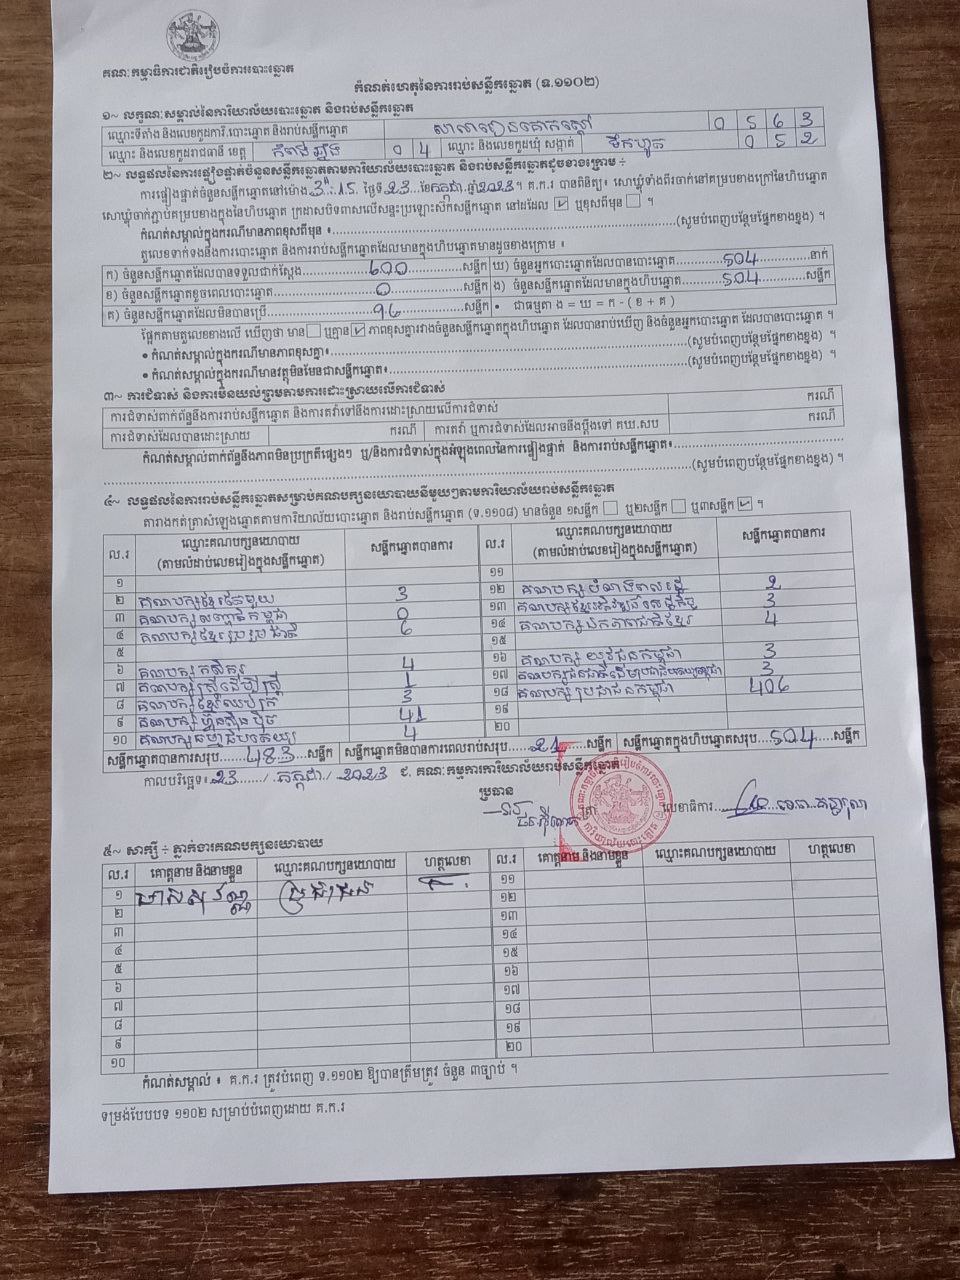 គណៈកម្មាធិការជាតិរៀបចំការបោះឆ្នោត
កំណត់ហេតុនៃការរាប់សន្លឹកឆ្នោត (ទ.១១០២)
១~ លក្ខណៈសម្គាល់នៃការិយាល័យបោះឆ្នោត និងរាប់សន្លឹកឆ្នោត
ឈ្មោះទីតាំង និងលេខកូដការិ.បោះឆ្នោត និងរាប់សន្លឹកឆ្នោត សាលារៀនគោកស្ដៅ 0 5 6 3
ឈ្មោះ និងលេខកូដរាជធានី ខេត្ត កំពង់ឆ្នាំង 0 4 ឈ្មោះ និងលេខកូដឃុំ សង្កាត់ ទឹកហូត 0 5 2
២~ លទ្ធផលនៃការផ្ទៀងផ្ទាត់ចំនួនសន្លឹកឆ្នោតតាមការិយាល័យបោះឆ្នោត និងរាប់សន្លឹកឆ្នោតដូចខាងក្រោម ÷
ការផ្ទៀងផ្ទាត់ចំនួនសន្លឹកឆ្នោតនៅម៉ោង 3:15 ថ្ងៃទី 23 ខែ កក្កដា ឆ្នាំ 2023 ។ គ.ក.រ បានពិនិត្យ៖ សោឃ្លុំទាំងពីរចាក់នៅគម្របខាងក្រៅនៃហិបឆ្នោត
សោឃ្លុំចាក់ភ្ជាប់គម្របខាងក្នុងនៃហិបឆ្នោត ក្រដាសបិទពាសលើសន្ទះប្រឡោះសឹកសន្លឹកឆ្នោត នៅដដែល ☑ ឬខុសពីមុន ☐ ។
កំណត់សម្គាល់ក្នុងករណីមានភាពខុសពីមុន ៖ (សូមបំពេញបន្ថែមផ្នែកខាងខ្នង) ។
តួលេខទាក់ទងនឹងការបោះឆ្នោត និងការរាប់សន្លឹកឆ្នោតដែលមានក្នុងហិបឆ្នោតមានដូចខាងក្រោម ៖
ក) ចំនួនសន្លឹកឆ្នោតដែលបានទទួលជាក់ស្ដែង 600 សន្លឹក ឃ) ចំនួនអ្នកបោះឆ្នោតដែលបានបោះឆ្នោត 504 នាក់
ខ) ចំនួនសន្លឹកឆ្នោតខូចពេលបោះឆ្នោត 0 សន្លឹក ង) ចំនួនសន្លឹកឆ្នោតដែលមានក្នុងហិបឆ្នោត 504 សន្លឹក
គ) ចំនួនសន្លឹកឆ្នោតដែលមិនបានប្រើ 96 សន្លឹក • ជាធម្មតា ង = ឃ = ក - ( ខ + គ )
ផ្អែកតាមតួលេខខាងលើ ឃើញថា មាន ☐ ឬគ្មាន ☑ ភាពខុសគ្នារវាងចំនួនសន្លឹកឆ្នោតក្នុងហិបឆ្នោត ដែលបានរាប់ឃើញ និងចំនួនអ្នកបោះឆ្នោត ដែលបានបោះឆ្នោត ។
• កំណត់សម្គាល់ក្នុងករណីមានភាពខុសគ្នា៖ (សូមបំពេញបន្ថែមផ្នែកខាងខ្នង) ។
• កំណត់សម្គាល់ក្នុងករណីមានវត្ថុមិនមែនជាសន្លឹកឆ្នោត៖ (សូមបំពេញបន្ថែមផ្នែកខាងខ្នង) ។
៣~ ការជំទាស់ និងការមិនយល់ព្រមតាមការដោះស្រាយលើការជំទាស់
ការជំទាស់ពាក់ព័ន្ធនឹងការរាប់សន្លឹកឆ្នោត និងការតវ៉ាទៅនឹងការដោះស្រាយលើការជំទាស់ ករណី
ការជំទាស់ដែលបានដោះស្រាយ ករណី ការតវ៉ា ឬការជំទាស់ដែលអាចនឹងប្ដឹងទៅ គឃ.សប ករណី
កំណត់សម្គាល់ពាក់ព័ន្ធនឹងភាពមិនប្រក្រតីផ្សេងៗ ឬ/និងការជំទាស់ក្នុងអំឡុងពេលនៃការផ្ទៀងផ្ទាត់ និងការរាប់សន្លឹកឆ្នោត៖
(សូមបំពេញបន្ថែមផ្នែកខាងខ្នង) ។
៤~ លទ្ធផលនៃការរាប់សន្លឹកឆ្នោតសម្រាប់គណបក្សនយោបាយនីមួយៗតាមការិយាល័យរាប់សន្លឹកឆ្នោត
តារាងកត់ត្រាសំឡេងឆ្នោតតាមការិយាល័យបោះឆ្នោត និងរាប់សន្លឹកឆ្នោត (ទ.១១០៨) មានចំនួន ១សន្លឹក ☐ ឬ២សន្លឹក ☐ ឬ៣សន្លឹក ☑ ។
ល.រ ឈ្មោះគណបក្សនយោបាយ (តាមលំដាប់លេខរៀងក្នុងសន្លឹកឆ្នោត) សន្លឹកឆ្នោតបានការ ល.រ ឈ្មោះគណបក្សនយោបាយ (តាមលំដាប់លេខរៀងក្នុងសន្លឹកឆ្នោត) សន្លឹកឆ្នោតបានការ
១ ១១
២ គណបក្សខ្មែរតែមួយ 3 ១២ គណបក្ស 2
៣ គណបក្សសញ្ជាតិកម្ពុជា 0 ១៣ គណបក្សខ្មែរអភិវឌ្ឍន៍សេដ្ឋកិច្ច 3
៤ គណបក្សខ្មែររួបរួមជាតិ 6 ១៤ គណបក្សឯកភាពជាតិខ្មែរ 4
៥ ១៥
៦ គណបក្សកសិករ 4 ១៦ គណបក្សយុវជនកម្ពុជា 3
៧ គណបក្សស្ត្រីដើម្បីស្ត្រី 1 ១៧ គណបក្សជនជាតិដើមប្រជាធិបតេយ្យកម្ពុជា 3
៨ គណបក្សខ្មែរឈប់ក្រ 3 ១៨ គណបក្សប្រជាជនកម្ពុជា 406
៩ គណបក្សហ៊្វុនស៊ិនប៉ិច 41 ១៩
១០ គណបក្សធម្មាធិបតេយ្យ 4 ២០
សន្លឹកឆ្នោតបានការសរុប 483 សន្លឹក សន្លឹកឆ្នោតមិនបានការពេលរាប់សរុប 21 សន្លឹក សន្លឹកឆ្នោតក្នុងហិបឆ្នោតសរុប 504 សន្លឹក
កាលបរិច្ឆេទ៖ 23 / កក្កដា / 2023 ជ. គណៈកម្មការការិយាល័យរាប់សន្លឹកឆ្នោត
ប្រធាន
ត្រា លេខាធិការ
៥~ សាក្សី ÷ ភ្នាក់ងារគណបក្សនយោបាយ
ល.រ គោត្តនាម និងនាមខ្លួន ឈ្មោះគណបក្សនយោបាយ ហត្ថលេខា ល.រ គោត្តនាម និងនាមខ្លួន ឈ្មោះគណបក្សនយោបាយ ហត្ថលេខា
១ មាសសុវណ្ណ ប្រជាជន ១១
២ ១២
៣ ១៣
៤ ១៤
៥ ១៥
៦ ១៦
៧ ១៧
៨ ១៨
៩ ១៩
១០ ២០
កំណត់សម្គាល់ ៖ គ.ក.រ ត្រូវបំពេញ ទ.១១០២ ឱ្យបានត្រឹមត្រូវ ចំនួន ៣ច្បាប់ ។
ទម្រង់បែបបទ ១១០២ សម្រាប់បំពេញដោយ គ.ក.រ